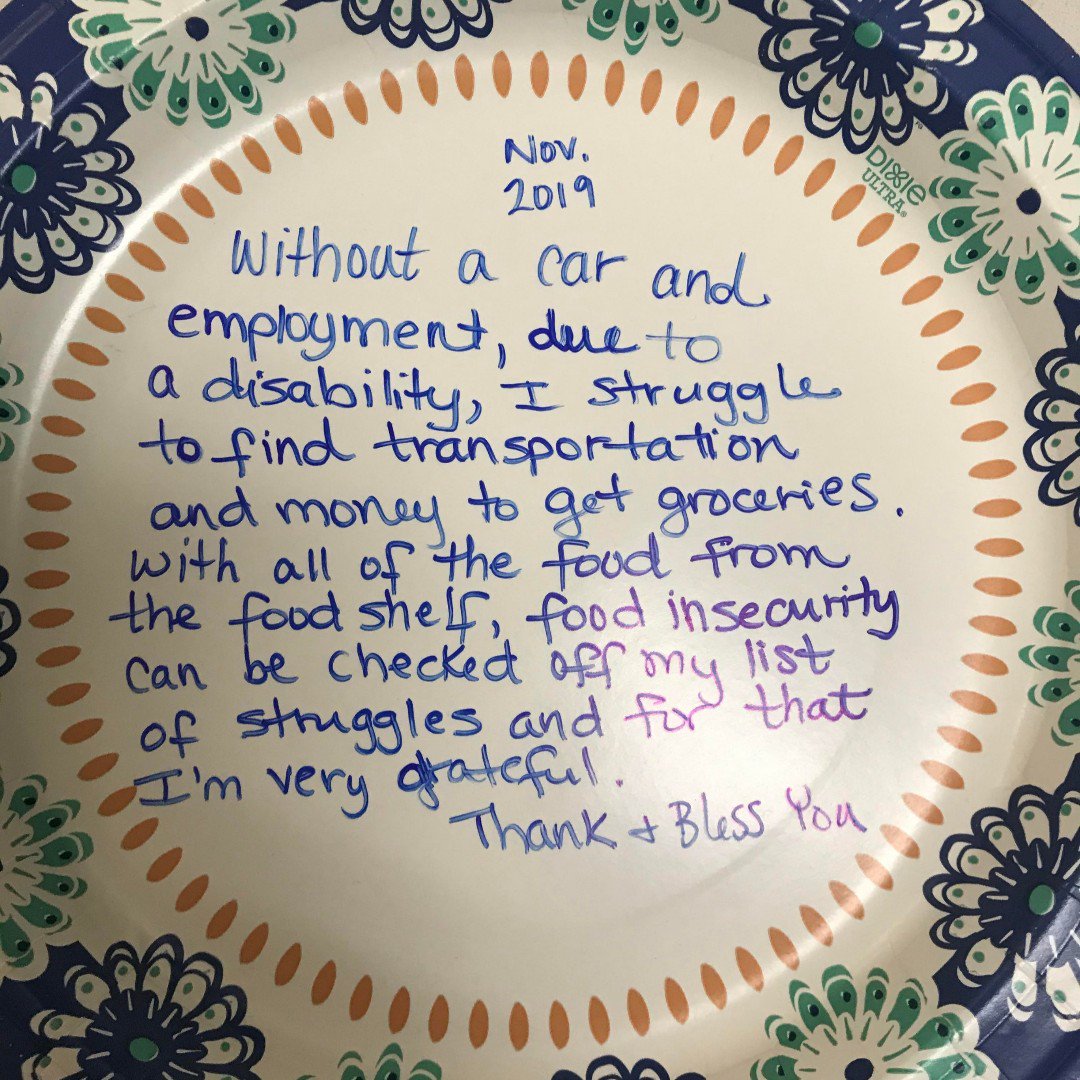 Nov.
2019
DIXIE
ULTRA®
Without a car and
employment, due to
a disability, I struggle
to find transportation
and money to get groceries.
With all of the food from
the food shelf, food insecurity
can be checked off my list
of struggles and for that
I'm very grateful.
Thank + Bless You